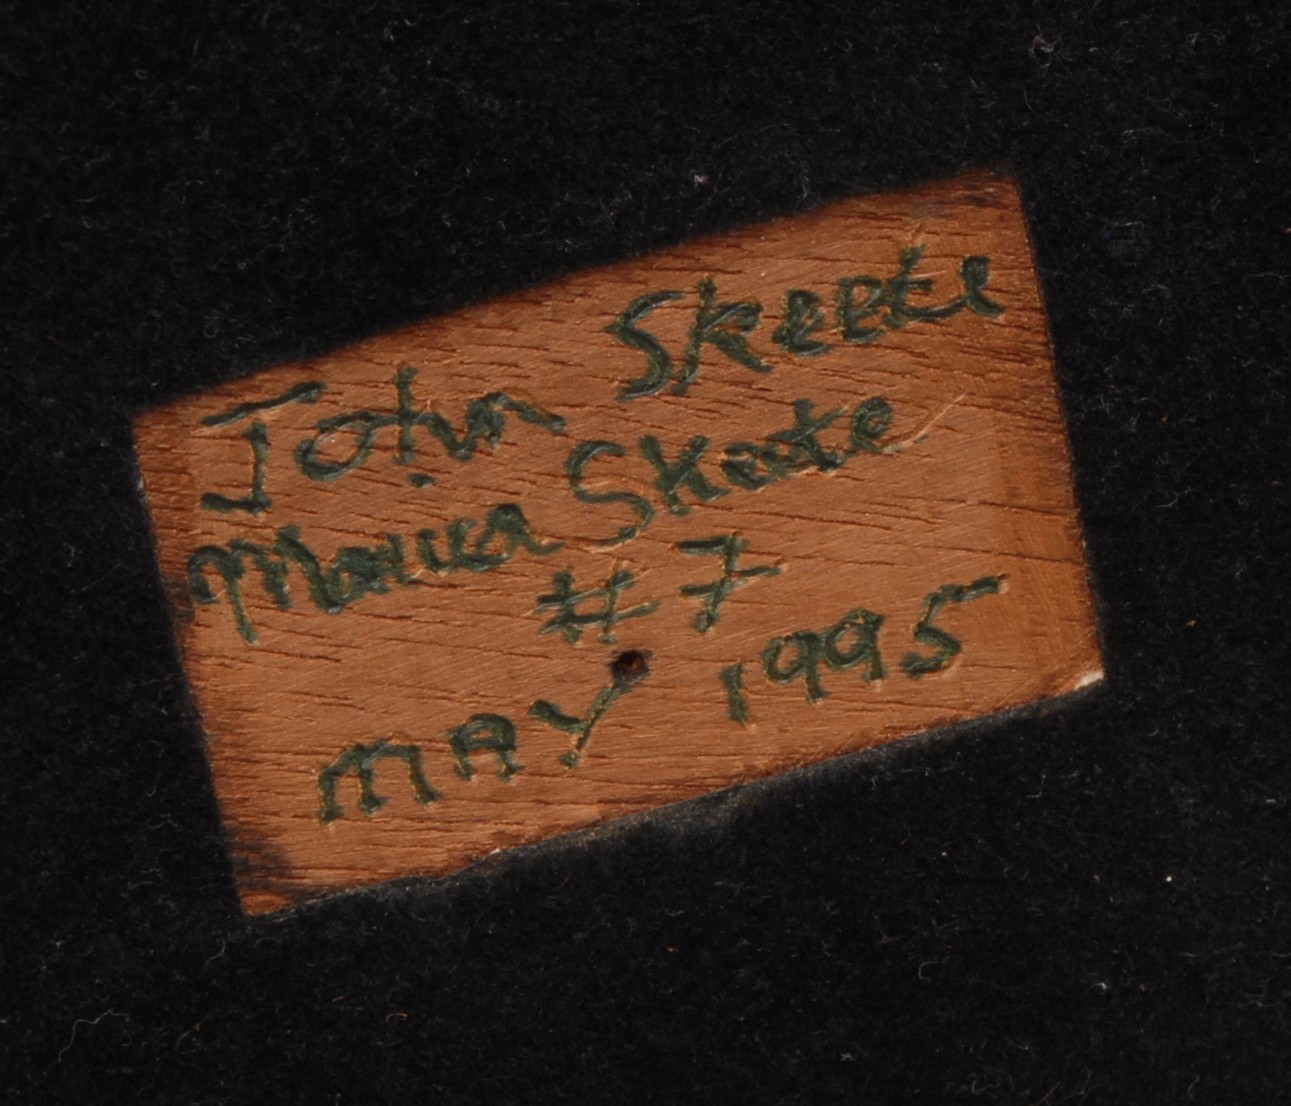 John Skeete
Monica Skeete
# 7
MAY 1995